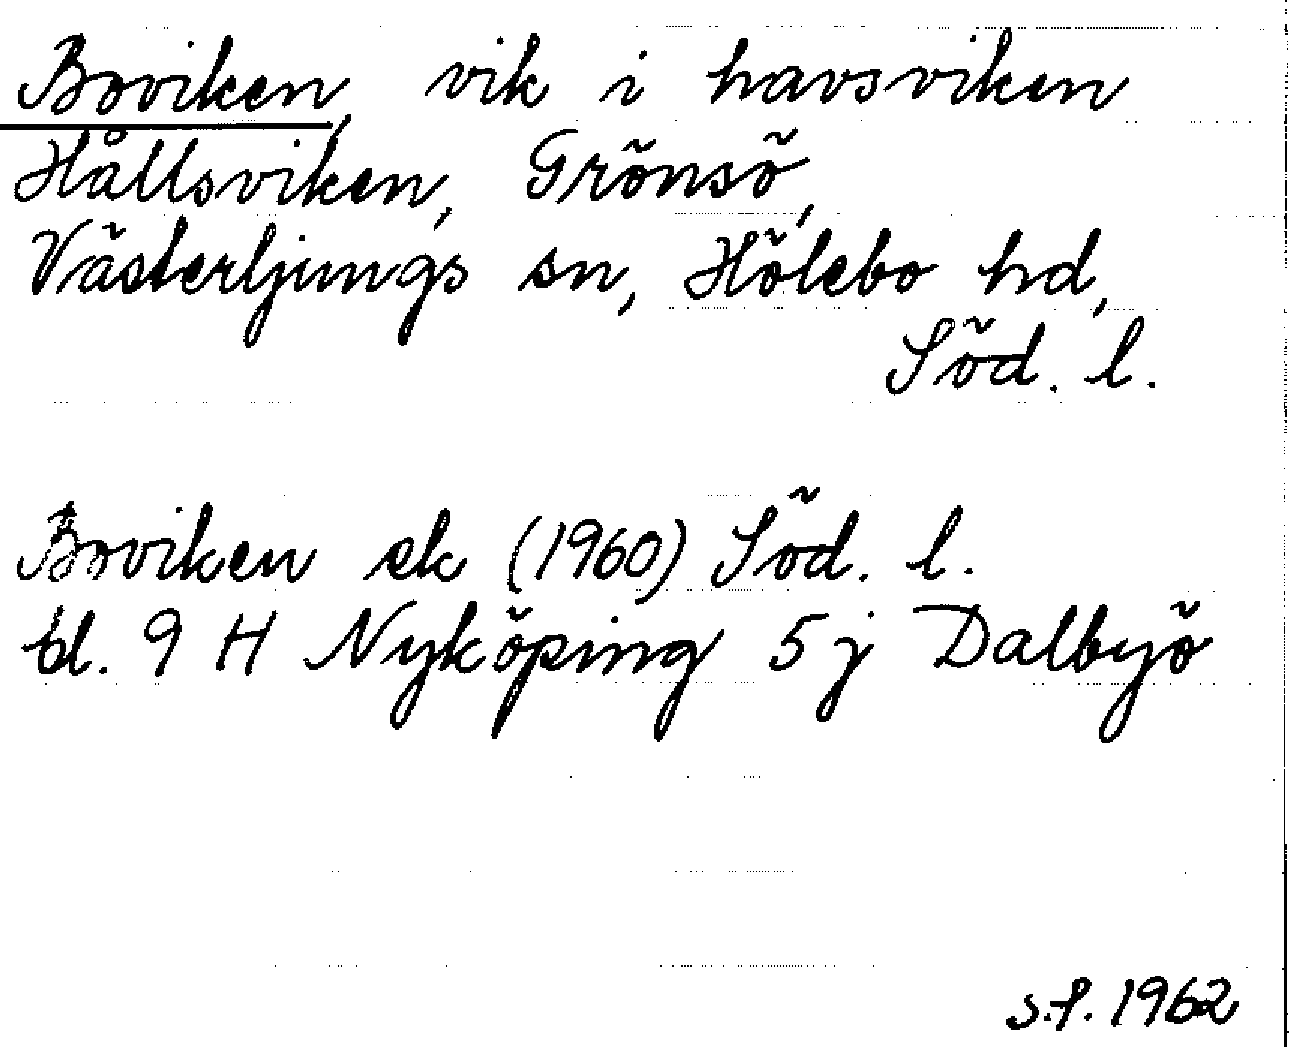 Boviken, vik i havsviken
Hållsviken, Grönsö,
Västerljungs sn, Hölebo hd,
Söd. l.
Boviken ek (1960) Söd. l.
bl. 9 H Nyköping 5 j Dalbyö
S.F. 1962